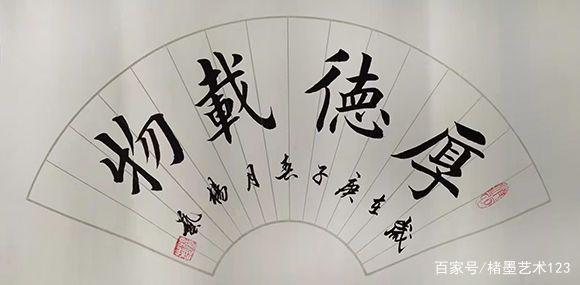 厚德載物
歲在庚子春月
百家号/楮墨艺术123